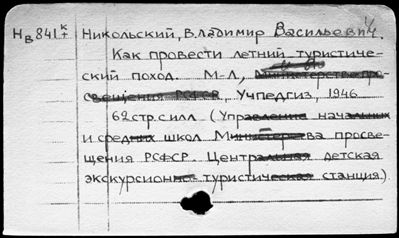 Нв841 к/т Никольский, Владимир Васильевич.
Как провести летний туристиче-
ский поход. М-Л, Министерство про-
свещения РСФСР, Учпедгиз, 1946
62стр. с илл (Управление начальных
и средних школ Министерства просве-
щения РСФСР. Центральная детская
экскурсионная туристическая станция).